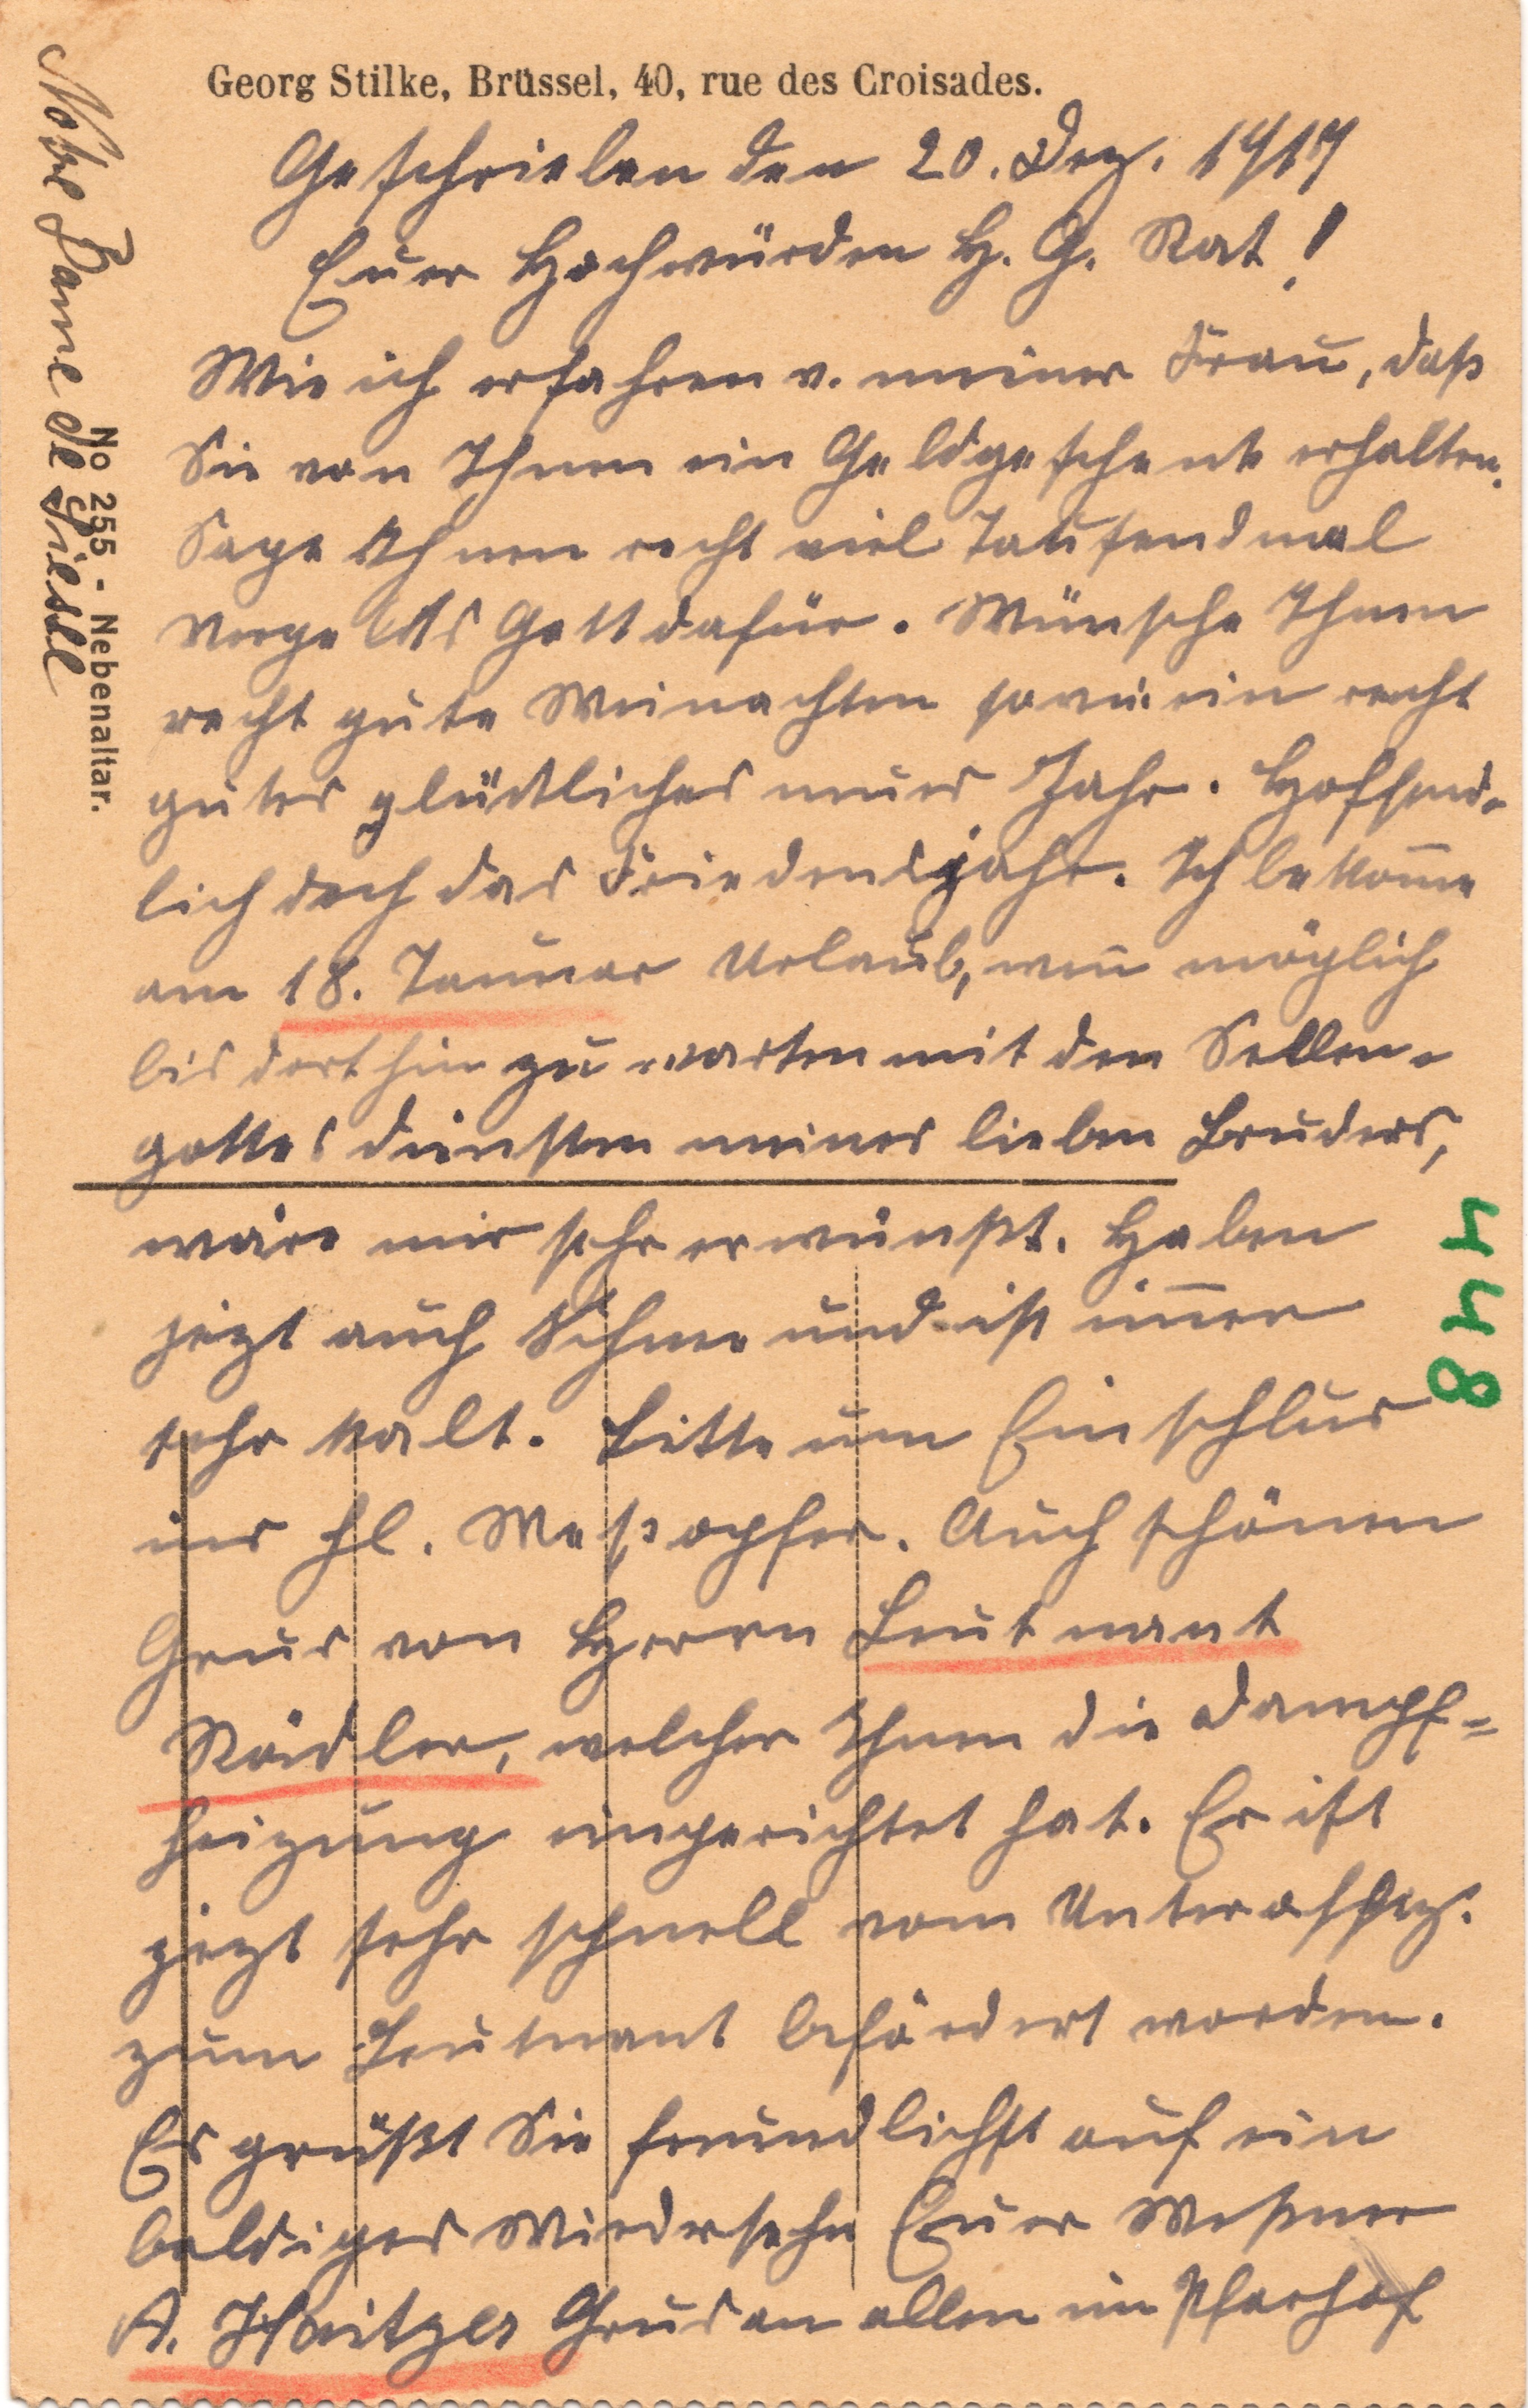 Georg Stilke, Brüssel, 40, rue des Croisades.
Geschrieben den 20. Dez. 1917
Euer Hochwürden H. G. Rat!
Wie ich erfahren v. meiner Frau, daß
Sie von Ihnen ein Geldgeschenk erhalten.
Sage Ihnen recht viel Tausendmal
Vergelts Gott dafür. Wünsche Ihnen
recht gute Weinachten sowie ein recht
gutes glückliches neues Jahr. Hoffend-
lich doch das Friedensjahr. Ich bekom̅e
am 18. Januar Urlaub, wen̅ möglich
bis dorthin zu warten mit den Sellen-
gottesdiensten meines lieben Bruders,
wäre mir sehr erwünscht. Haben
jezt auch Schnee und ist im̅er
sehr kalt. Bitte um Einschlus
ins hl. Meßopfer. Auch schönen
Grus von Herrn Leutnant
Rädler, welcher Ihnen die Dampf=
heizung eingerichtet hat. Er ist
jezt sehr schnell vom Unteroffiz.
zum Leutnant befördert worden.
Es grüßt Sie freundlichst auf ein
baldiges Wiedersehn Euer Meßner
A. Grus an allen im Pfarhof
Notre Dame de
No 255 - Nebenaltar.
448